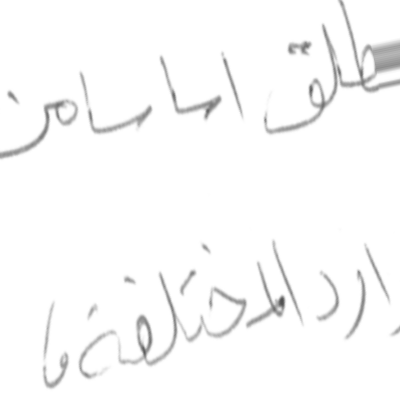 طلق اساسا من
ارد المختلفة و